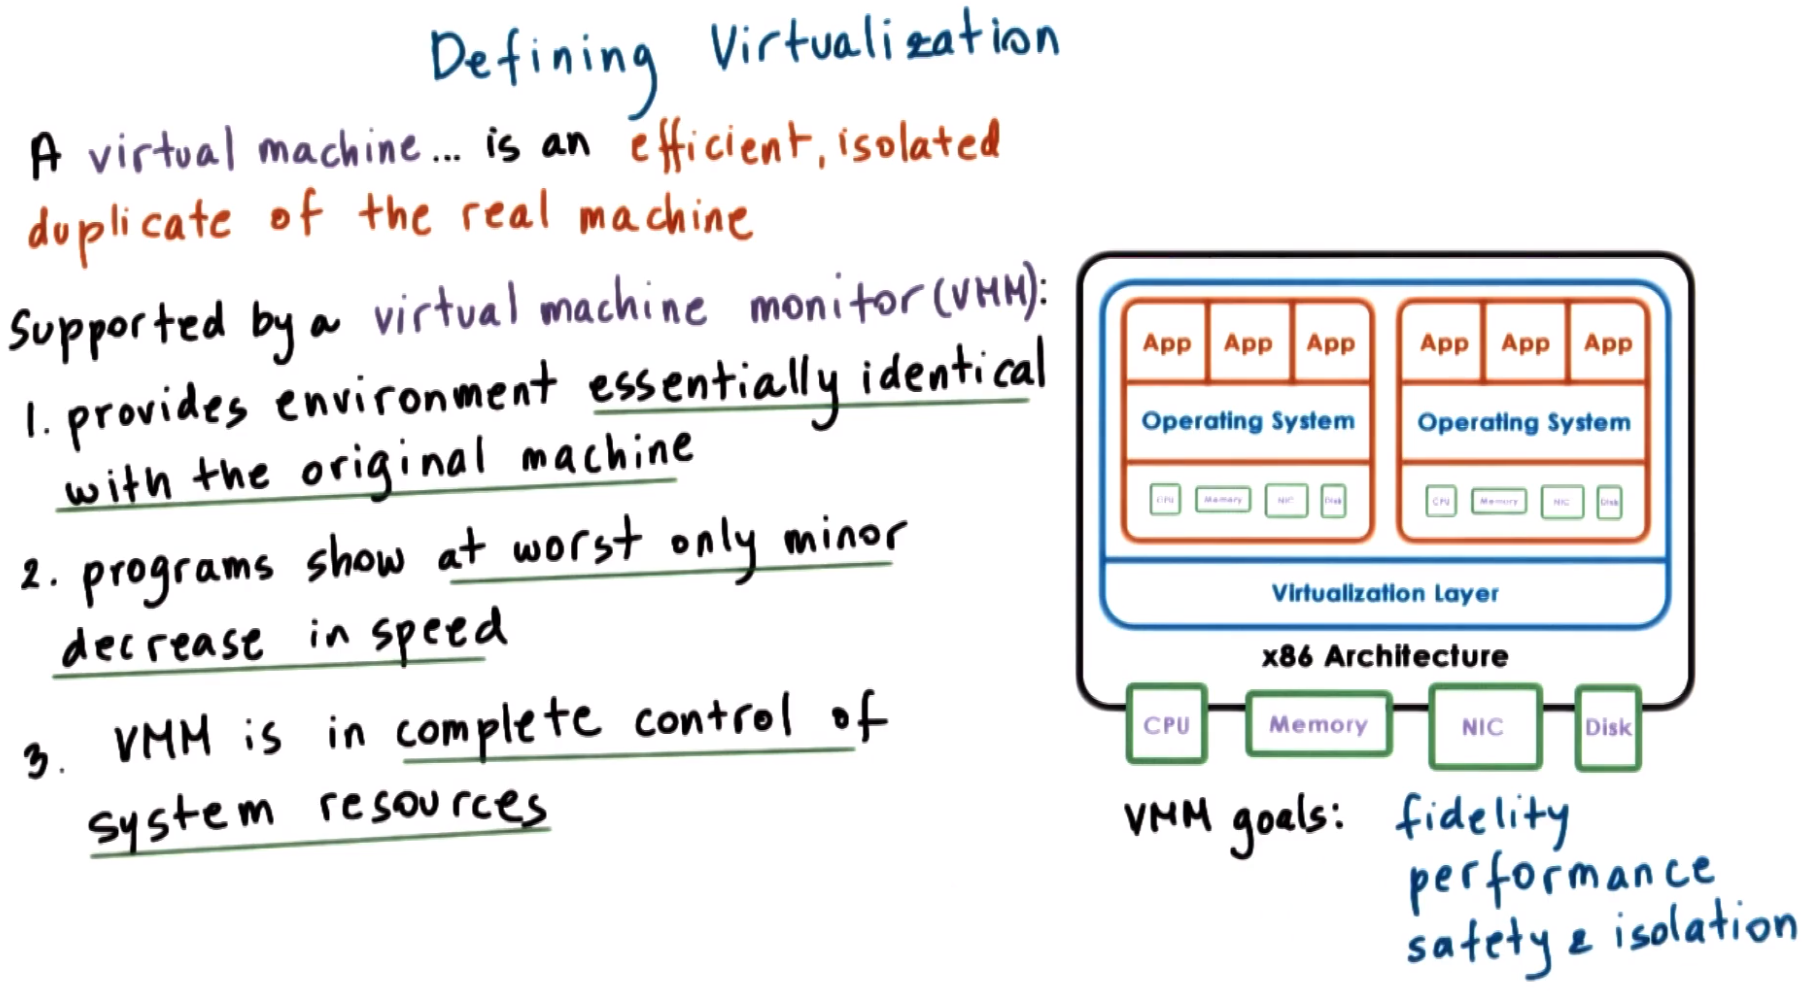 Defining Virtualization
A virtual machine... is an efficient, isolated
duplicate of the real machine
Supported by a virtual machine monitor (VMM):
1. provides environment essentially identical
with the original machine
2. programs show at worst only minor
decrease in speed
3. VMM is in complete control of
system resources
App App App
Operating System
CPU Memory NIC Disk
App App App
Operating System
CPU Memory NIC Disk
Virtualization Layer
x86 Architecture
CPU Memory NIC Disk
VMM goals: fidelity
performance
safety & isolation